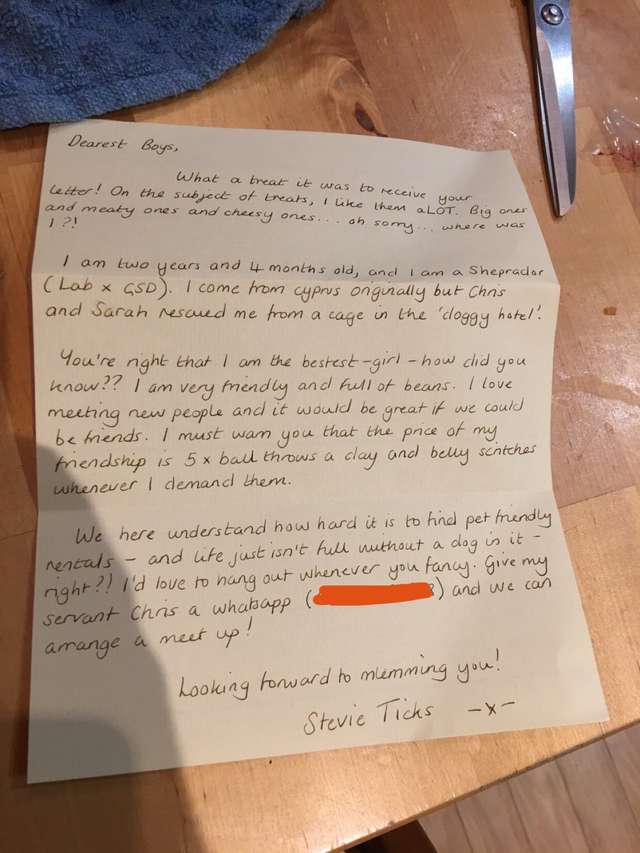 Dearest Boys,
What a treat it was to receive your
letter! On the subject of treats, I like them aLOT. Big ones
and meaty ones and cheesy ones... oh sorry... where was
I?!
I am two years and 4 months old, and I am a Sheprador
(Lab x GSD). I come from cyprus originally but Chris
and Sarah rescued me from a cage in the 'doggy hotel'.
You're right that I am the bestest-girl - how did you
know?? I am very friendly and full of beans. I love
meeting new people and it would be great if we could
be friends. I must warn you that the price of my
friendship is 5 x ball throws a day and belly scritches
whenever I demand them.
We here understand how hard it is to find pet friendly
rentals - and life just isn't full without a dog in it -
right?! I'd love to hang out whenever you fancy. Give my
servant Chris a whatsapp ( ) and we can
arrange a meet up!
Looking forward to mlemming you!
Stevie Ticks -x-